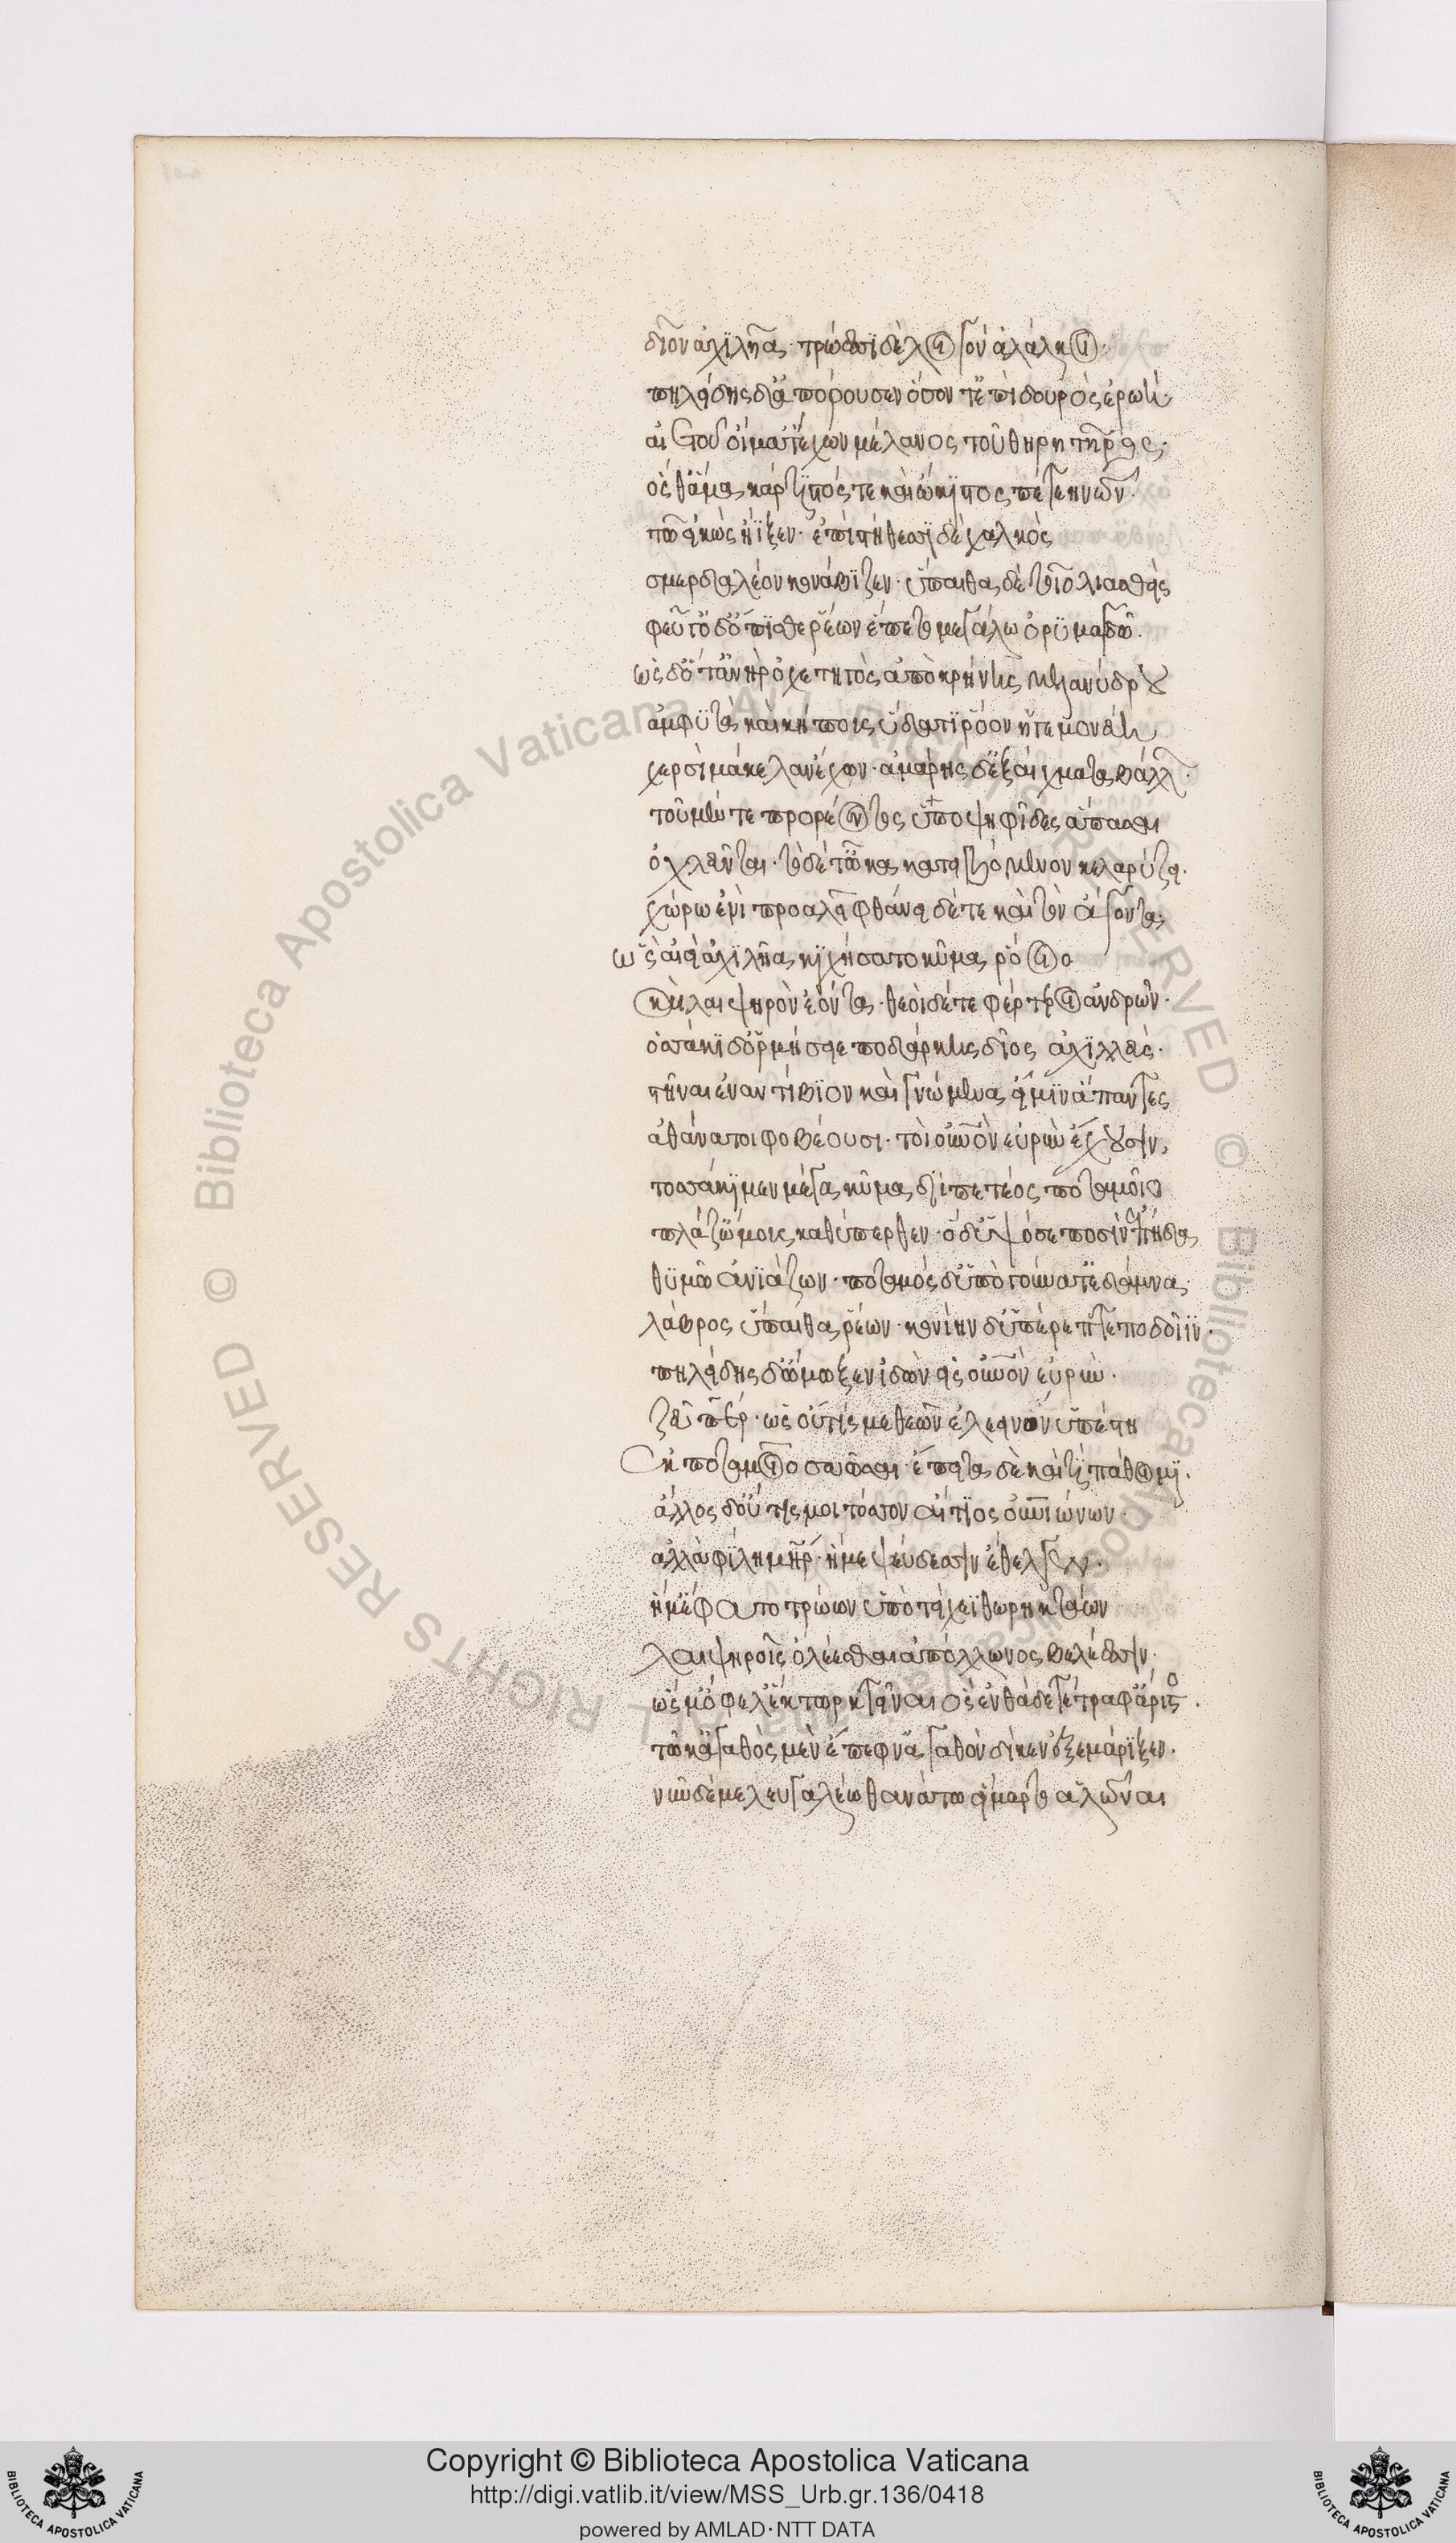 δῖον ἀχιλῆα· τρώεσσι δὲ λοιγὸν ἀλάλκοι·
πηλείδης δ' ἀπόρουσεν ὅσον τ' ἐπὶ δουρὸς ἐρωή·
αἰετοῦ οἴματ' ἔχων μέλανος τοῦ θηρητῆρος·
ὅς θ' ἅμα κάρτιστός τε καὶ ὤκιστος πετεηνῶν·
τῶ εἰκὼς ἤϊξεν· ἐπὶ στήθεσσι δὲ χαλκὸς
σμερδαλέον κονάβιζεν· ὕπαιθα δὲ τοῖο λιασθεὶς
φεῦγ' ὁ δ' ὄπισθε ῥέων ἕπετο μεγάλω ὀρυμαγδῶ.
ὡς δ' ὅτ' ἀνὴρ ὀχετηγὸς ἀπὸ κρήνης μελανύδρου
ἀμφυτὰ καὶ κήπους ὕδατι ῥόον ἡγεμονεύη
χερσὶ μάκελαν ἔχων· ἀμάρης δ' ἐξ αἴχματα βάλλων·
τοῦ μέν τε προρέοντος ὑπὸ ψηφῖδες ἅπασαι
ὀχλεῦνται· τὸ δέ τ' ὦκα κατειβόμενον κελαρύζει·
χώρω ἐνὶ προαλεῖ φθάνει δέ τε καὶ τὸν ἄγοντα,
ὣς αἰεὶ ἀχιλῆα κιχήσατο κῦμα ῥόοιο
καὶ λαιψηρὸν ἐόντα· θεοὶ δέ τε φέρτεροι ἀνδρῶν·
ὁσσάκι δ' ὁρμήσειε ποδάρκης δῖος ἀχιλλεύς·
στῆναι ἐναντίβιον καὶ γνώμεναι εἴ μιν ἅπαντες
ἀθάνατοι φοβέουσι· τοὶ οὐρανὸν εὐρὺν ἔχουσιν,
τοσσάκι μιν μέγα κῦμα διϊπετέος ποταμοῖο
πλάζ' ὤμοις καθύπερθεν· ὁ δ' ὑψόσε ποσὶν ἐπήδα
θυμῶ ἀνιάζων· ποταμὸς δ' ὑπὸ γούνατ' ἐδάμνα
λάβρος ὕπαιθα ῥέων· κονίην δ' ὑπέρεπτε ποδοῖιν·
πηλείδης δ' ὤμωξεν ἰδὼν εἰς οὐρανὸν εὐρύν·
ζεῦ πάτερ· ὡς οὔτίς με θεῶν ἐλεεινὸν ὑπέστη
ἐκ ποταμοῖο σαῶσαι· ἔπειτα δὲ καί τι πάθοιμι·
ἄλλος δ' οὔτις μοι τόσσον αἴτιος οὐρανιώνων·
ἀλλὰ φίλη μήτηρ· ἥ με ψεύδεσσιν ἔθελγεν·
ἥ μ' ἔφατο τρώων ὑπὸ τείχεϊ θωρηκτάων
λαιψηροῖς ὀλέεσθαι ἀπόλλωνος βελέεσσιν·
ὥς μ' ὄφελ' ἕκτωρ κτεῖναι ὃς ἐνθάδε γ' ἔτραφ' ἄριστος·
τῶ κ' ἀγαθὸς μὲν ἔπεφν' ἀγαθὸν δέ κεν ἐξενάριξεν·
νῦν δέ με λευγαλέω θανάτω εἵμαρτο ἁλῶναι